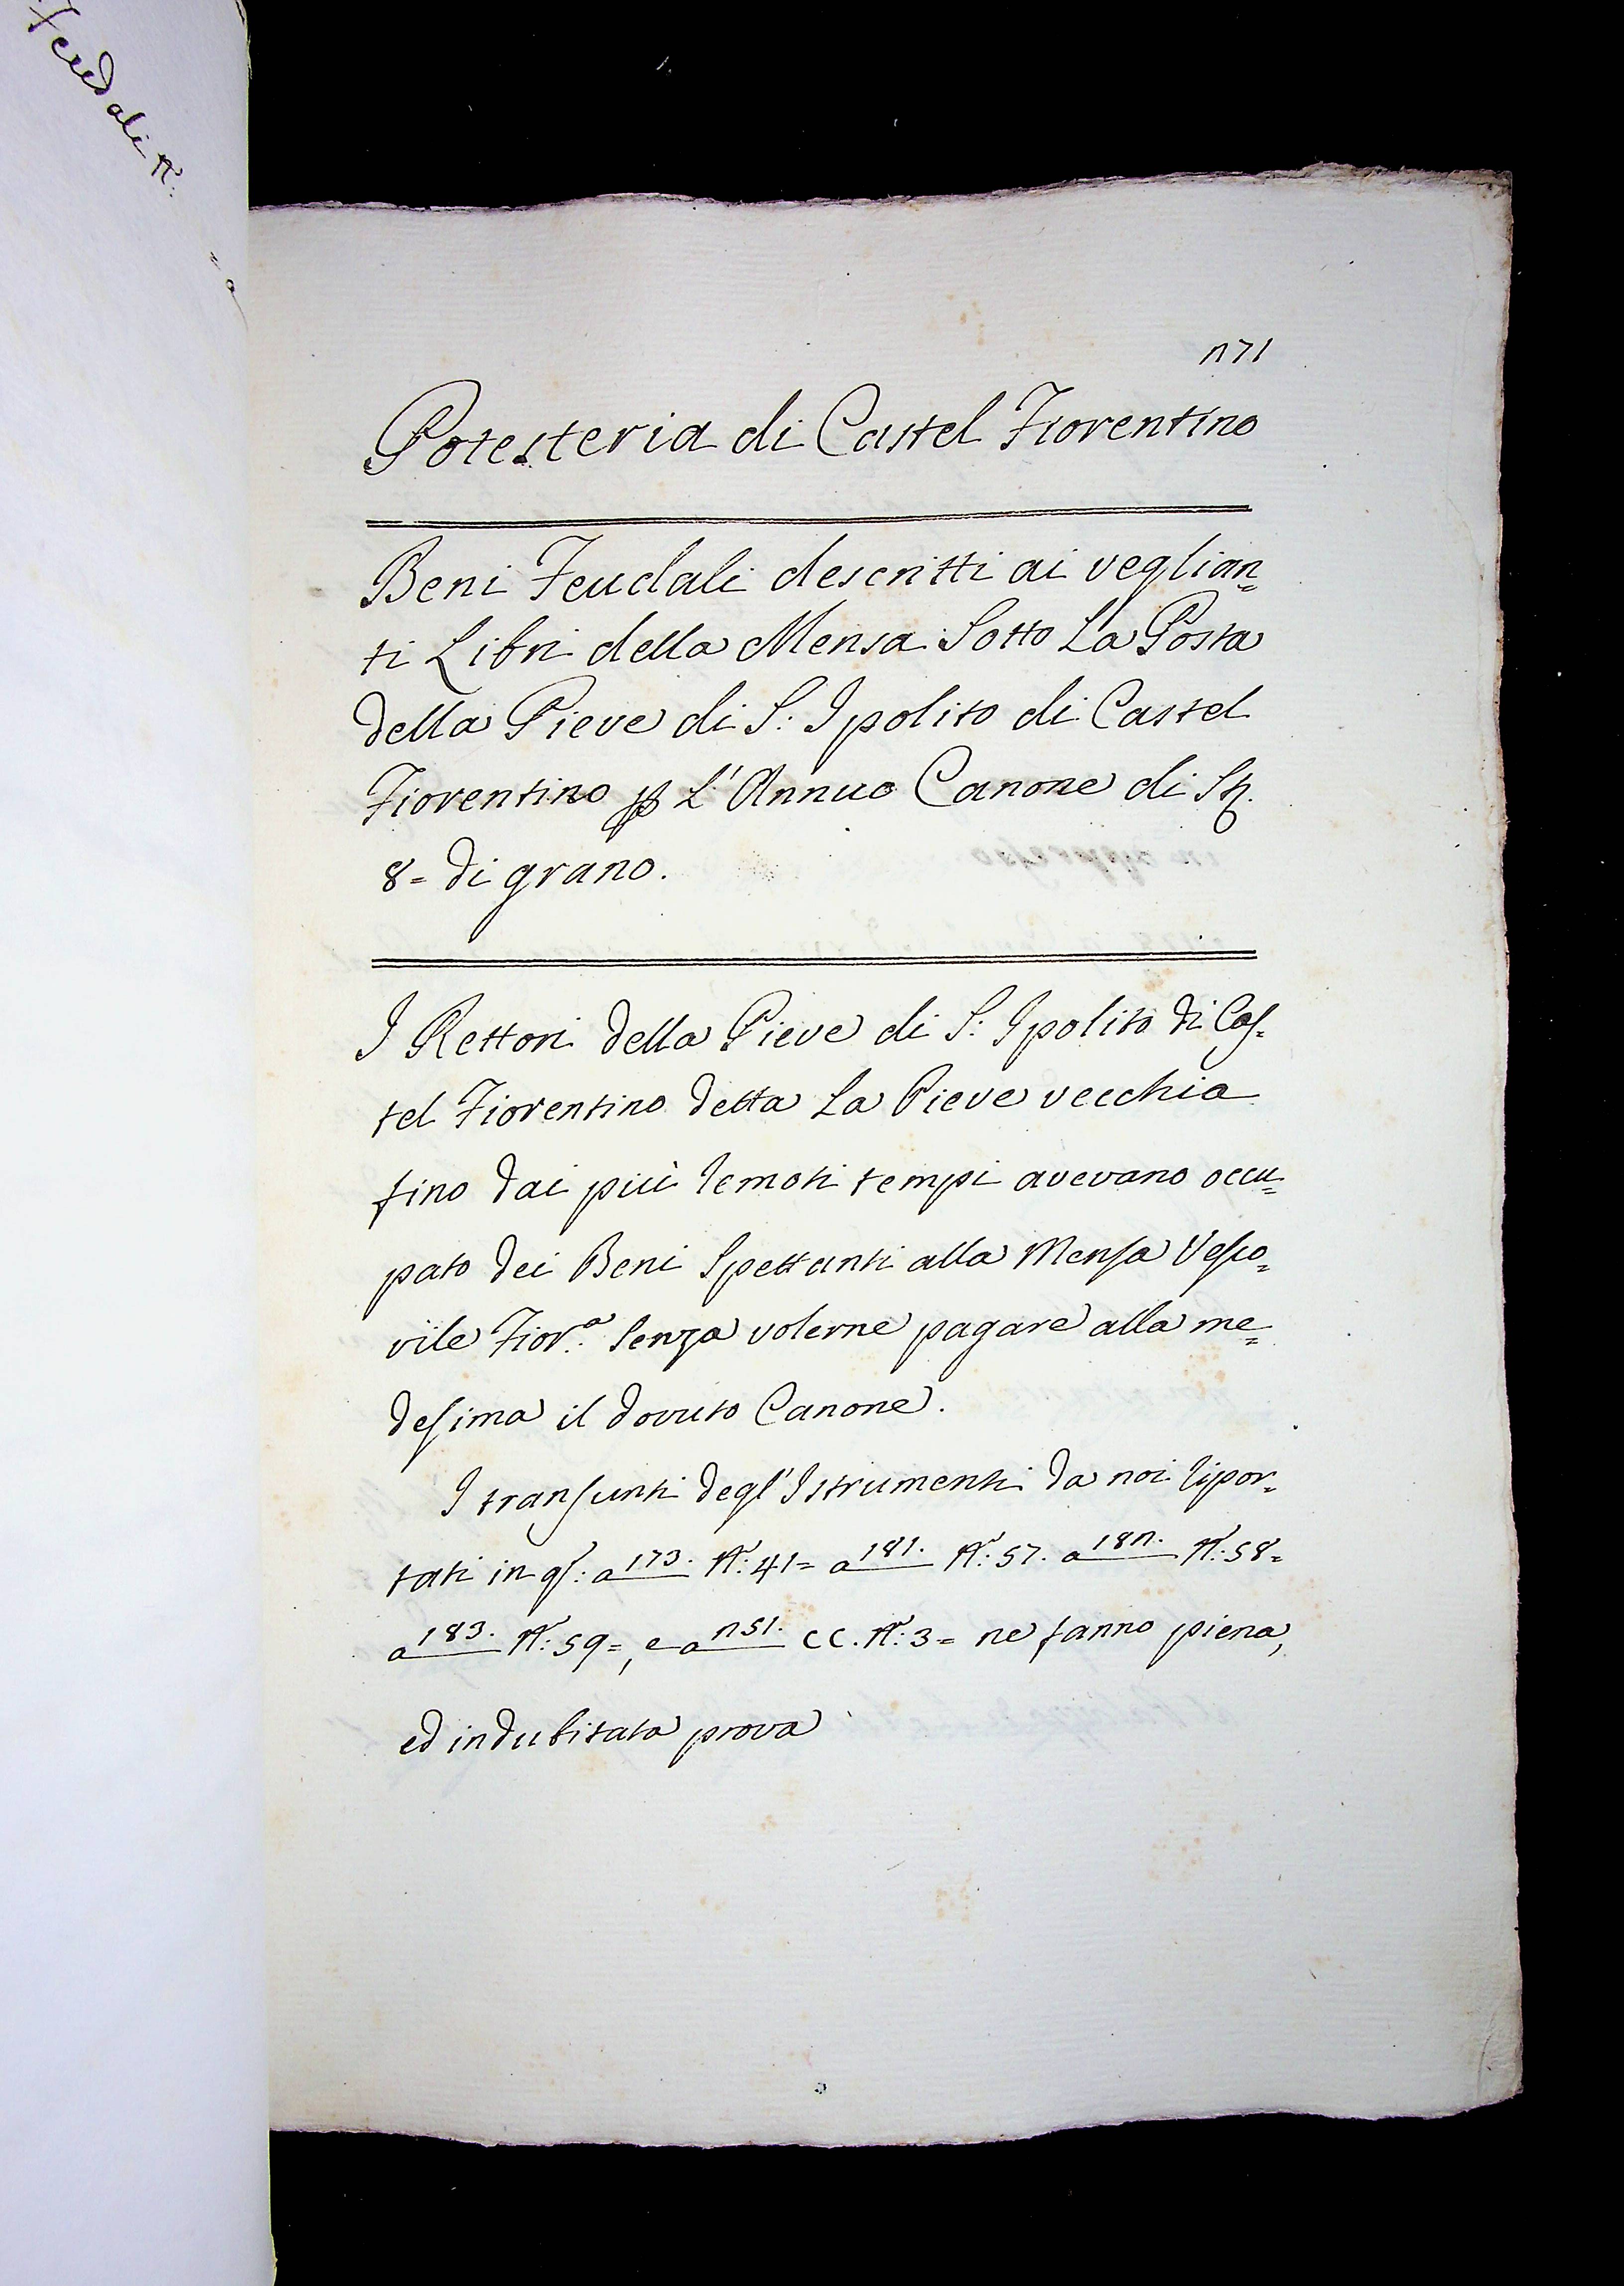 Feudali N:
271
Potesteria di Castel Fiorentino
Beni Feudali descritti ai veglian=
ti Libri della Mensa Sotto La Posta
della Pieve di S: Ipolito di Castel
Fiorentino p L'Annuo Canone di St.
8= di grano.
I Rettori della Pieve di S: Ipolito di Cas=
tel Fiorentino detta La Pieve vecchia
fino dai più remoti tempi avevano occu=
pato dei Beni Spettanti alla Mensa Vesco=
vile Fior.a Senza volerne pagare alla me=
desima il dovuto Canone.
I transunti degl'Istrumenti da noi ripor=
tati in q: a 173. N: 41= a 181. N: 57. a 182. N: 58=
a 183. N: 59=, e a 251. CC. N: 3= ne fanno piena,
ed indubitata prova